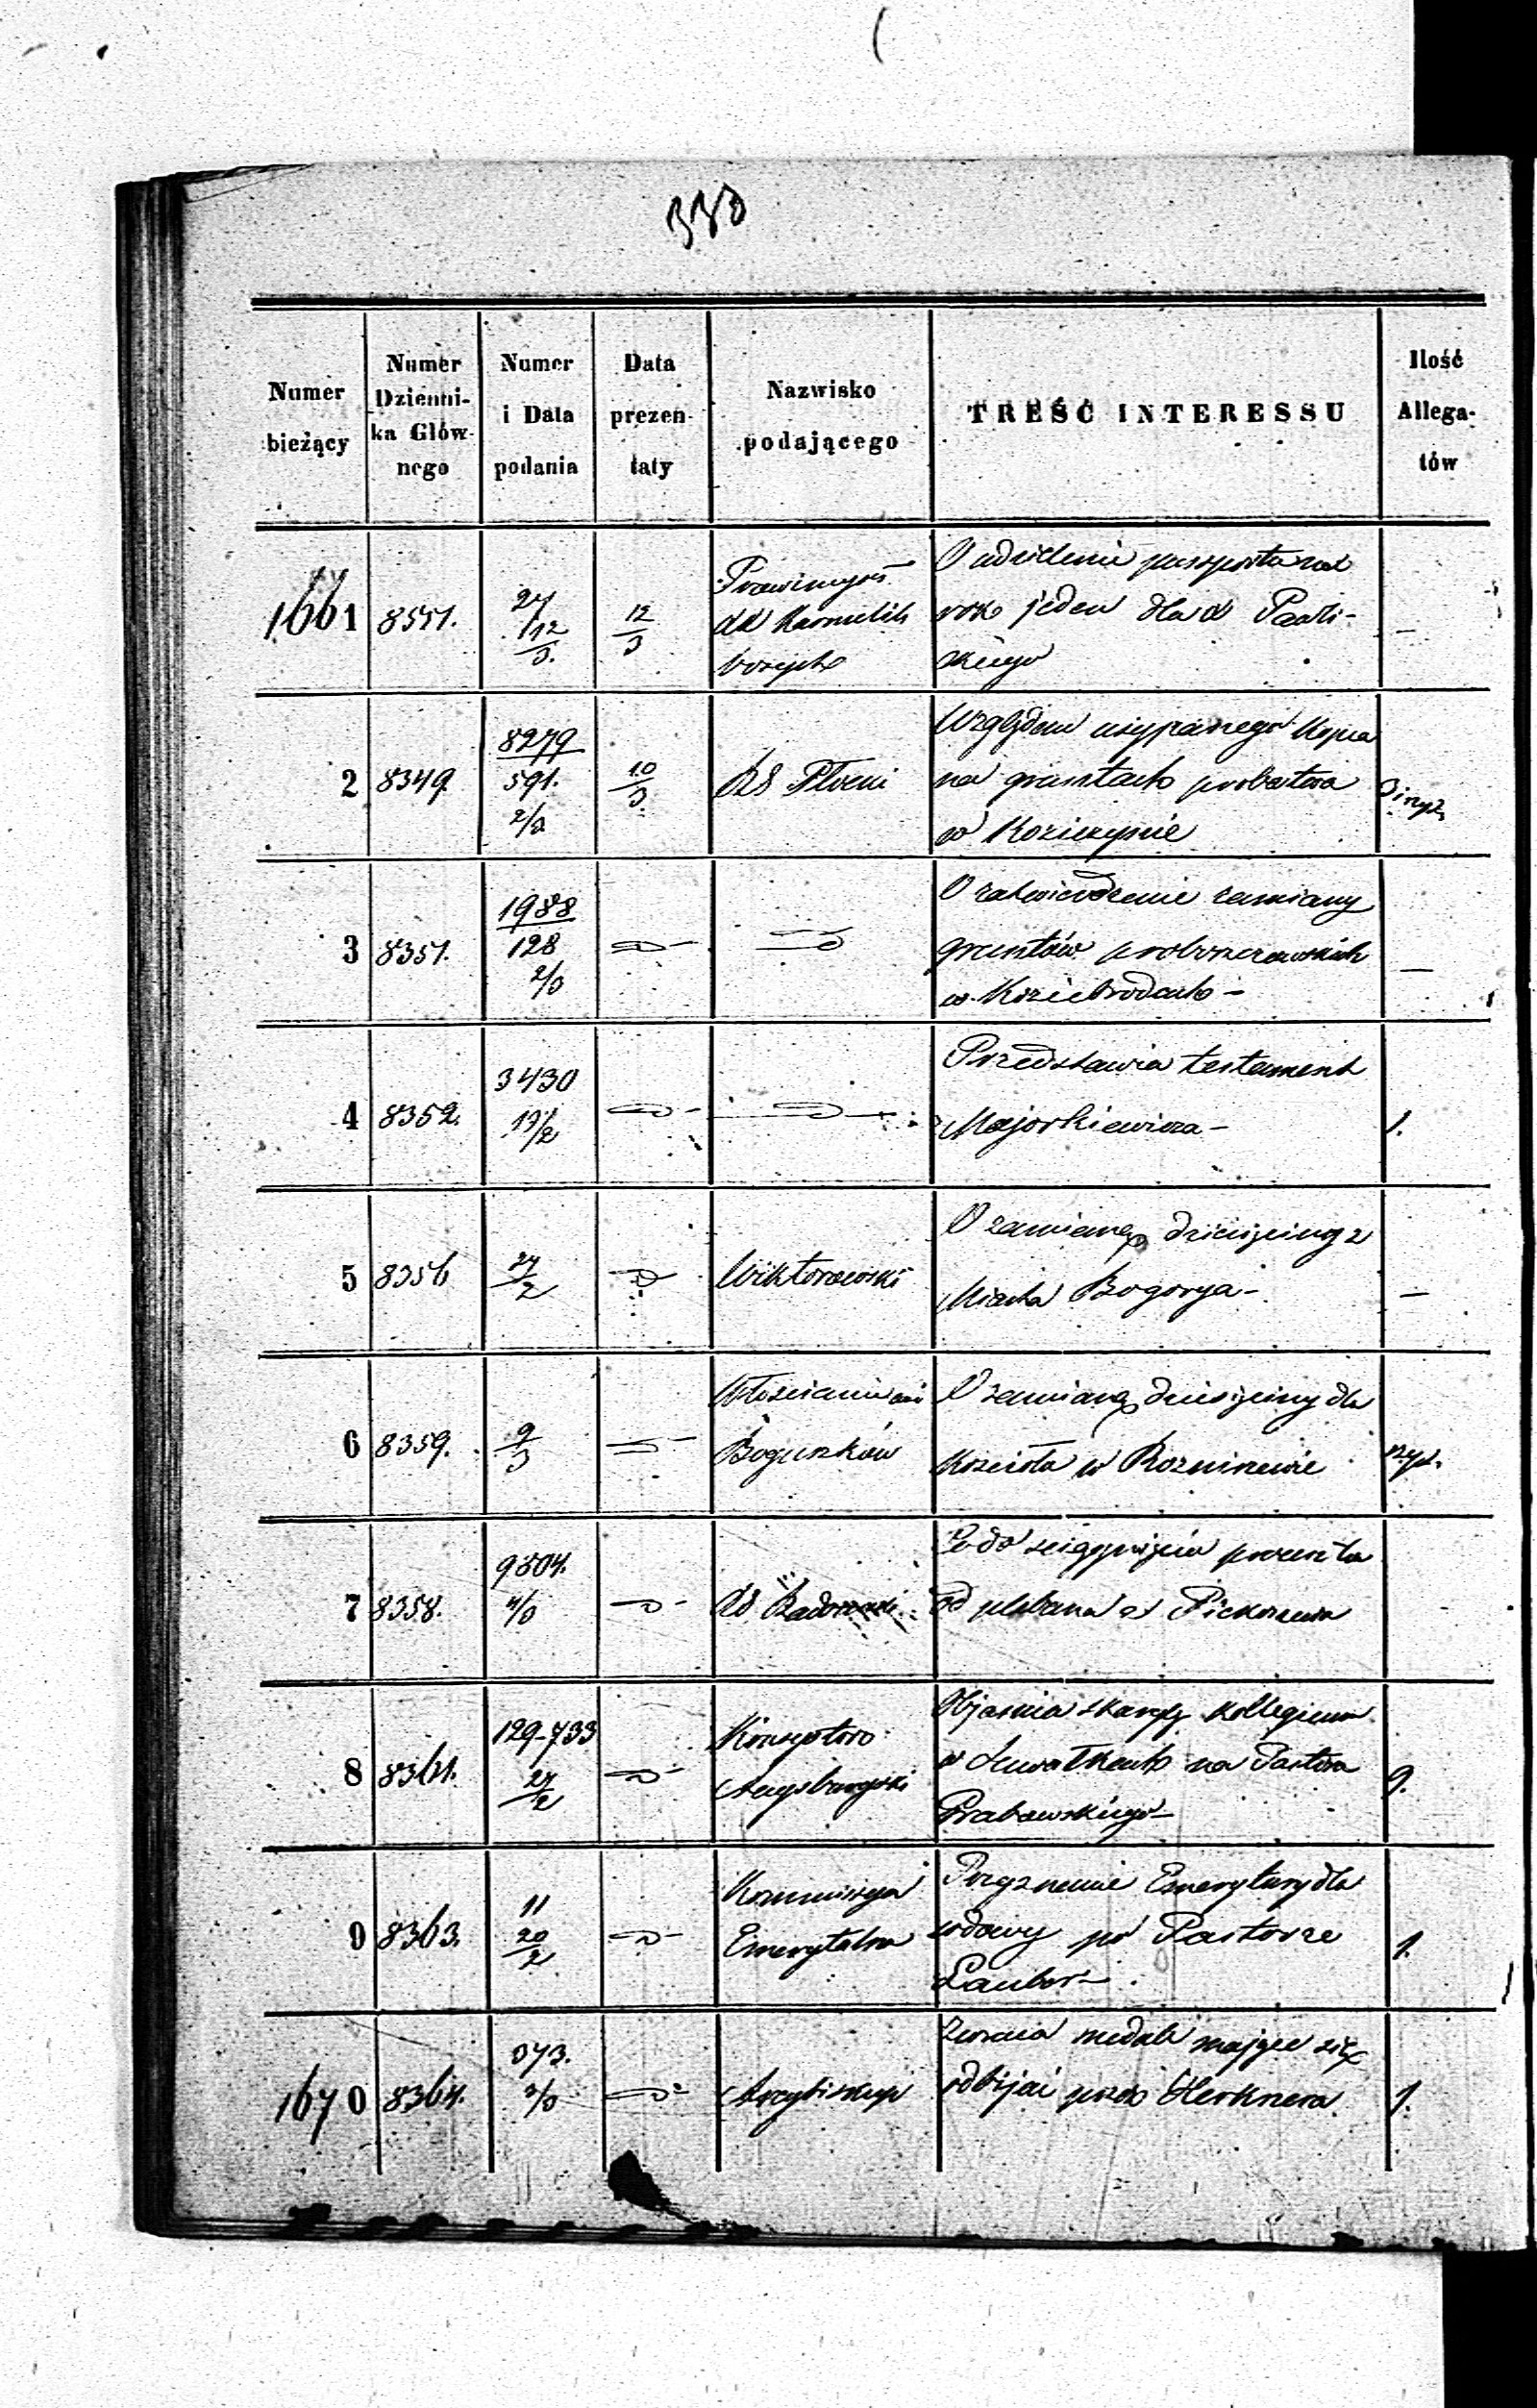 330
Numer bieżący
Numer Dzienni-ka Głów-nego
Numer i Data podania
Data prezen-taty
Nazwisko podającego
TREŚĆ INTERESSU
Ilość Allega-tów
1661 8551. 27 12/3. 12/3
O udzielenie paszportu na
rok jeden dla
skiego
—
2 8349 8279 591. 2/3 10/3 RG Płocki
Względem usypanego Kopca
na gruntach probostwa
w Koziczynie
3 8351. 1988 128 2/3
O zatwierdzenie zamiany
gruntów proboszczowskich
w Koziebrodach –
—
4 8352. 3430 19/2
Przedstawia testament
Majorkiewicza –
1.
5 8356 27/2 Wiktorowski
O zamianę dziesięciny z
Miasta Bogorya –
—
6 8359. 9/3 Włościanie wsi
Boguszków
O zamianę dziesięciny dla
Kościoła w Rozniszewie
7 8358. 9504. 4/3 RG Radomski
Co do ściągnięcia procentu
od plebana z
8 8361. 129-733 27/2 Konsystorz
Augsburgski
Objasnia skargę Kollegium
w Suwałkach na Pastora
Grabowskiego –
9.
9 8363. 11 20/2 Kommissya
Emerytalna
Przyznanie Emerytury dla
wdowy po Pastorze
Lauber –
1.
1670 8364. 373. 3/3 Arcybiskup
Zwraca medale mające się
odbijać przez Herknera
1.